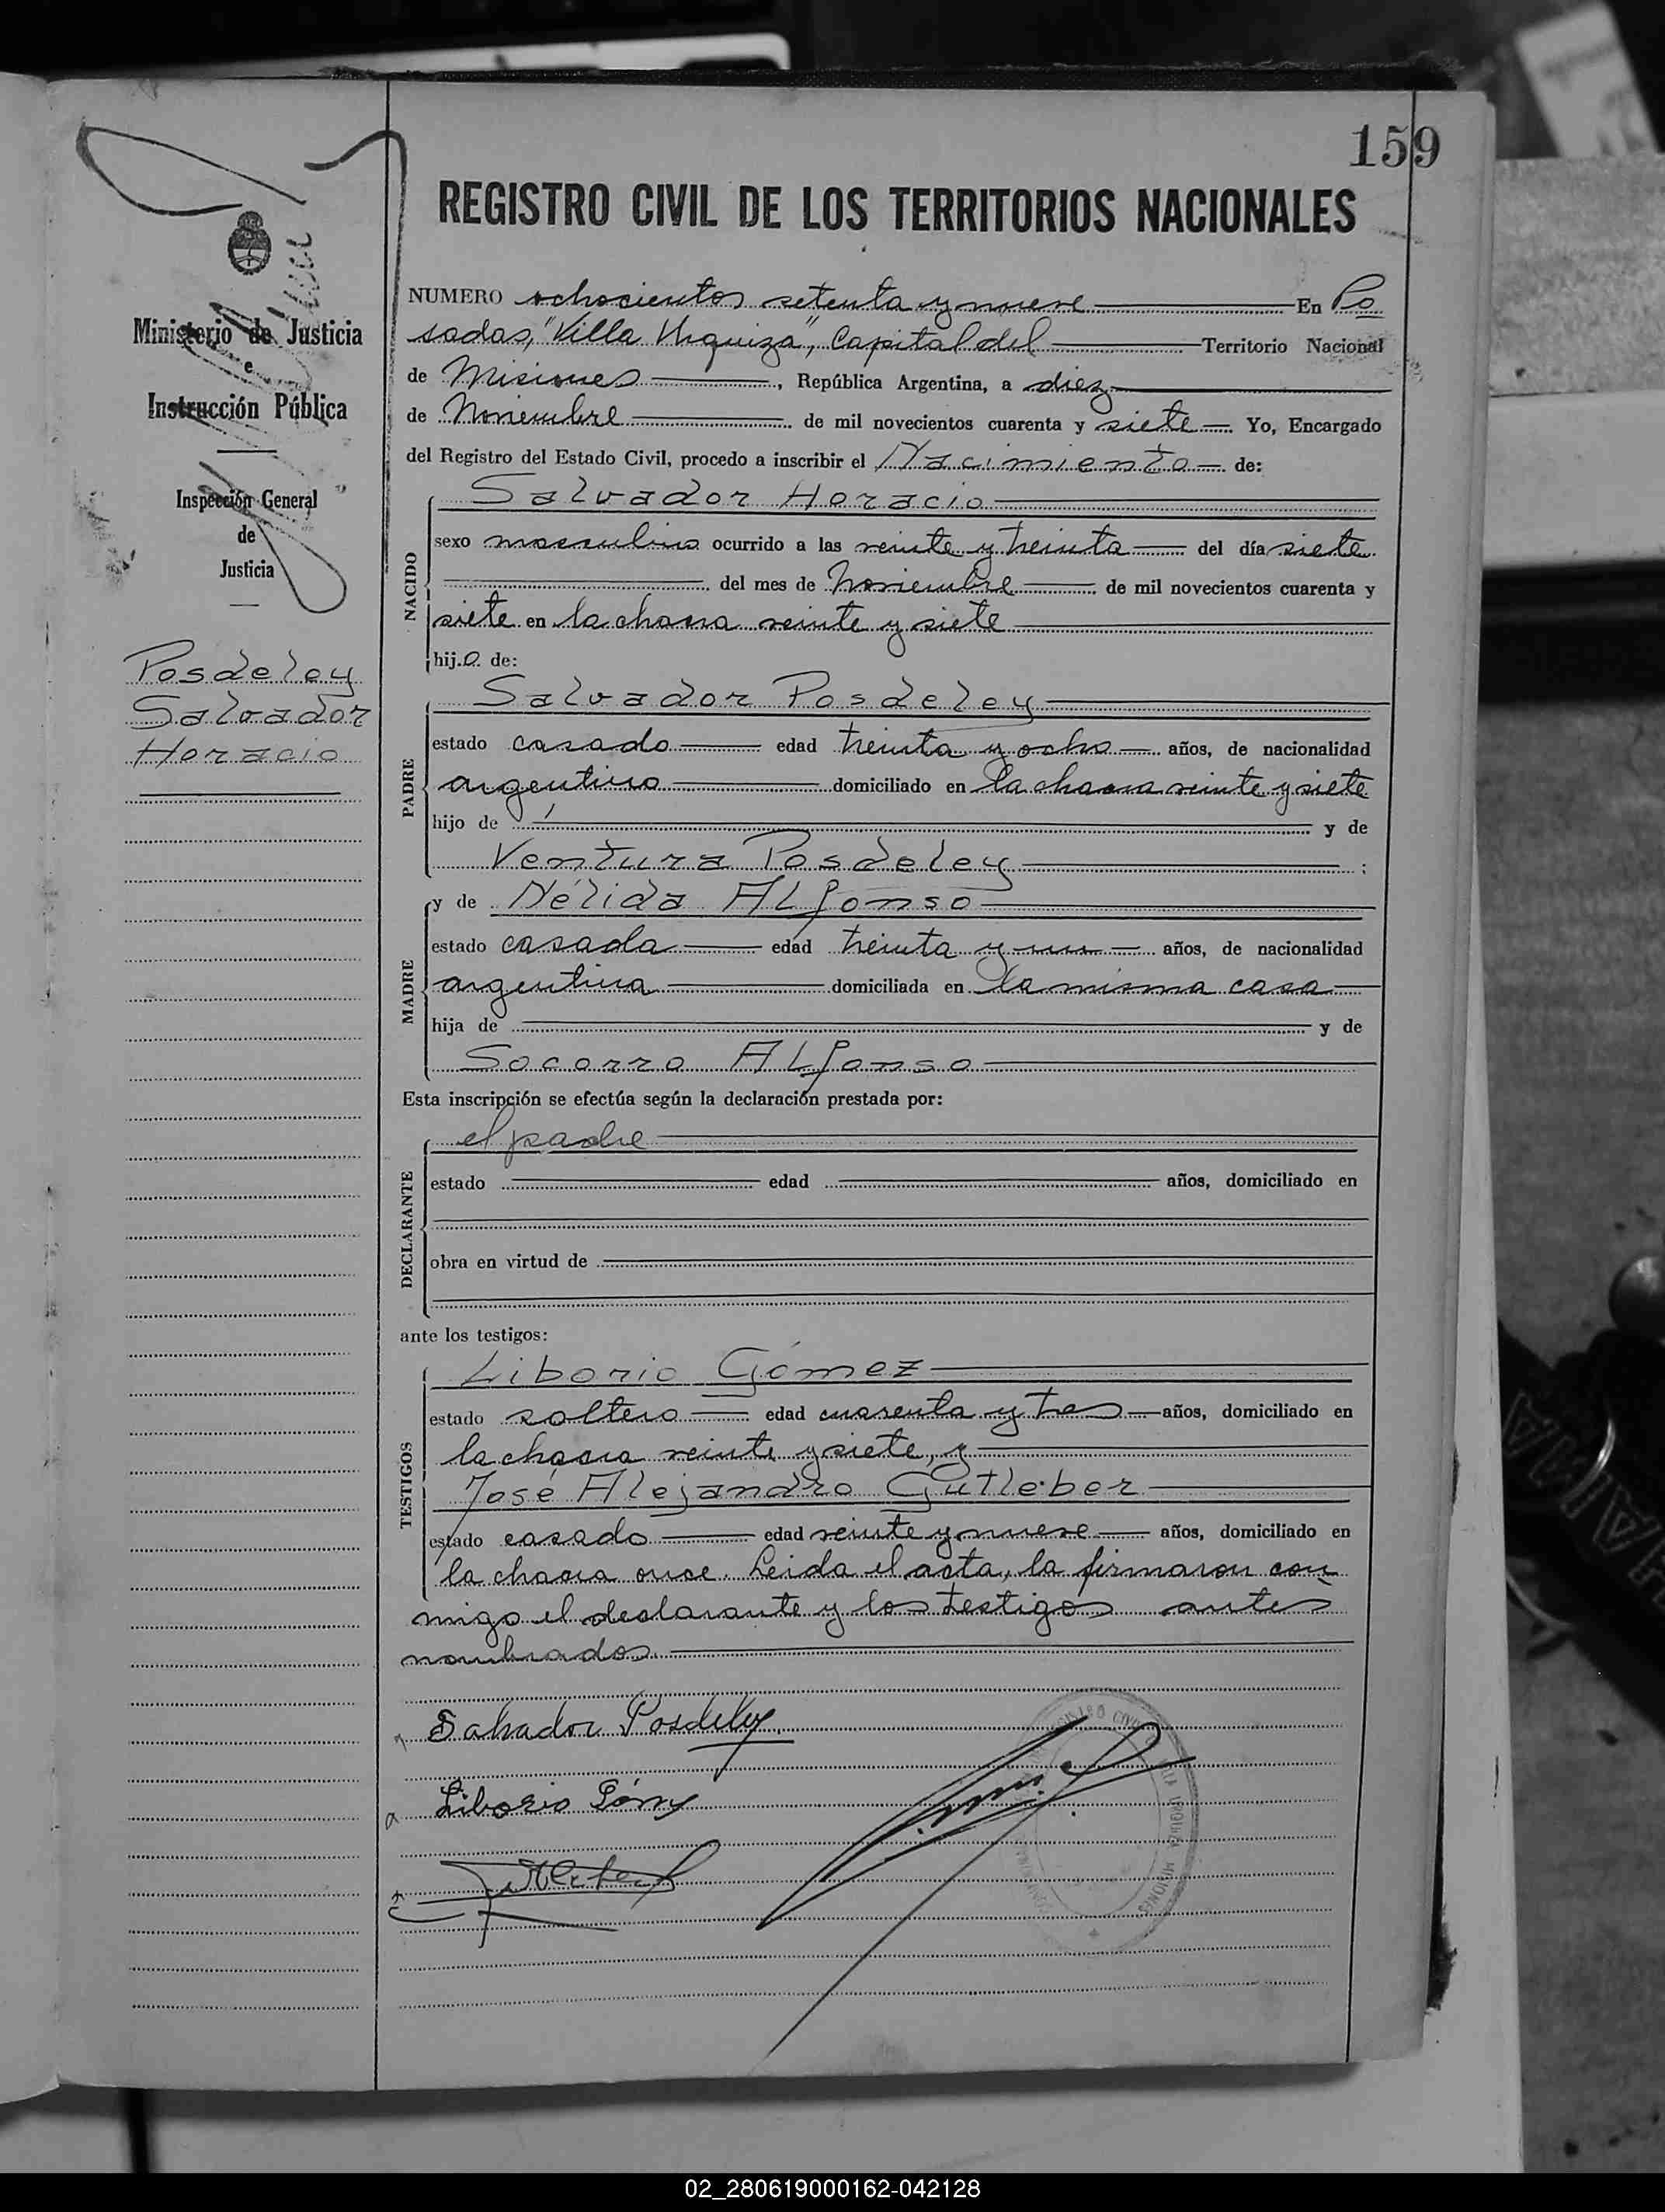 159
REGISTRO CIVIL DE LOS TERRITORIOS NACIONALES
Ministerio de Justicia
e
Instrucción Pública
Inspección General
de
Justicia
Posdeley
Salvador
Horacio
NUMERO ochocientos setenta y nueve En Po
sadas, "Villa Urquiza", Capital del Territorio Nacional
de Misiones, República Argentina, a diez
de Noviembre de mil novecientos cuarenta y siete Yo, Encargado
del Registro del Estado Civil, procedo a inscribir el Nacimiento de:
NACIDO
Salvador Horacio
sexo masculino ocurrido a las veinte y treinta del día siete
del mes de Noviembre de mil novecientos cuarenta y
siete en la chacra veinte y siete
hijo de:
PADRE
Salvador Posdeley
estado casado edad treinta y ocho años, de nacionalidad
argentino domiciliado en la chacra veinte y siete
hijo de y de
Ventura Posdeley ;
MADRE
y de Nélida Alfonso
estado casada edad treinta y un años, de nacionalidad
argentina domiciliada en la misma casa
hija de y de
Socorro Alfonso
Esta inscripción se efectúa según la declaración prestada por:
DECLARANTE
el padre
estado edad años, domiciliado en
obra en virtud de
ante los testigos:
TESTIGOS
Liborio Gómez
estado soltero edad cuarenta y tres años, domiciliado en
la chacra veinte y siete, y
José Alejandro Gutleber
estado casado edad veinte y nueve años, domiciliado en
la chacra once. Leida el acta, la firmaron con
migo el declarante y los testigos antes
nombrados.
Salvador Posdeley
Liborio Gómez
02_280619000162-042128